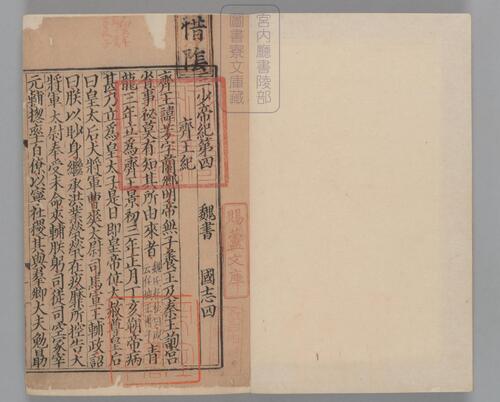 宮内廳書陵部
圖書寮文庫藏
惜陰
三少帝紀第四　魏書　國志四
齊王紀
齊王諱芳字蘭卿明帝無子養王及秦王詢宮
省事祕莫有知其所由來者
青
龍三年立爲齊王景初三年正月丁亥朔帝病
甚乃立爲皇太子是日即皇帝位大赦尊皇后
曰皇太后大將軍曹爽太尉司馬宣王輔政詔
曰朕以眇身繼承洪業煢煢在疚靡所控告大
將軍太尉奉受末命夾輔朕躬司徒司空冢宰
元輔總率百僚以寧社稷其與羣卿大夫勉勗
賜蘆文庫